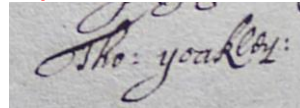 Tho: yoakley: